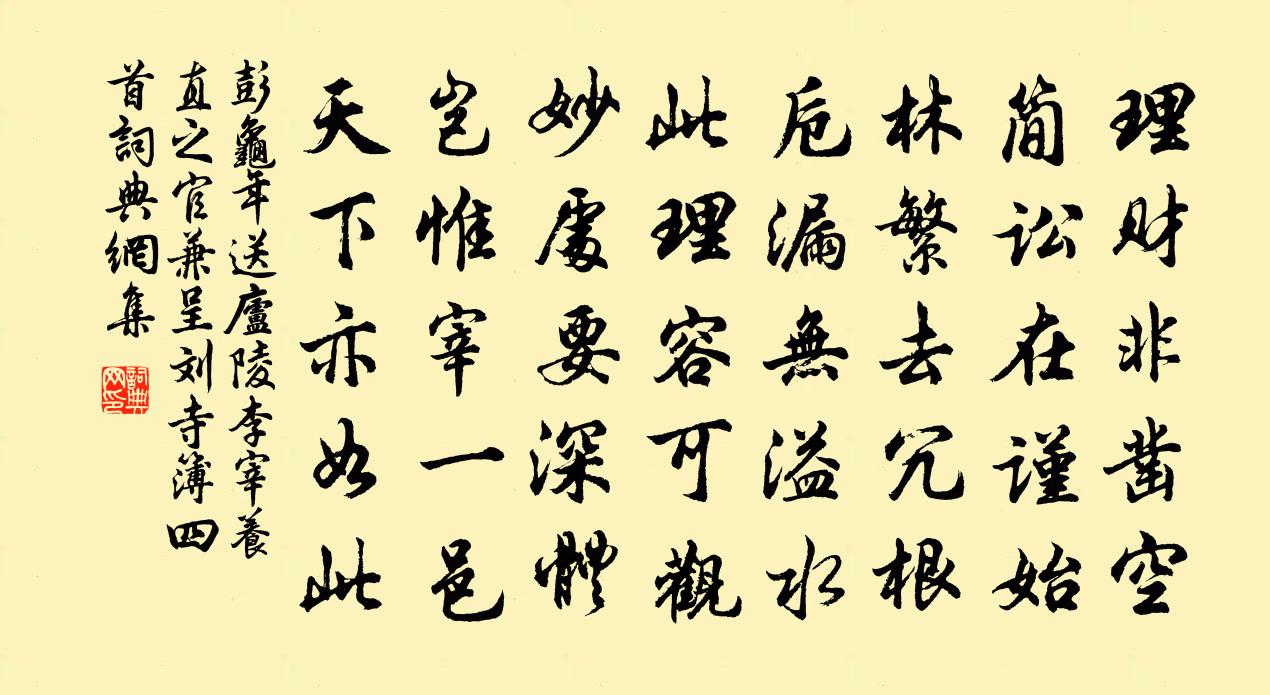 理财非凿空
简讼在谨始
林繁去冗根
卮漏無溢水
此理容可觀
妙處要深體
岂惟宰一邑
天下亦如此
彭龜年送廬陵李宰養
直之官兼呈刘寺簿四
首詞典網集
詞典
网印